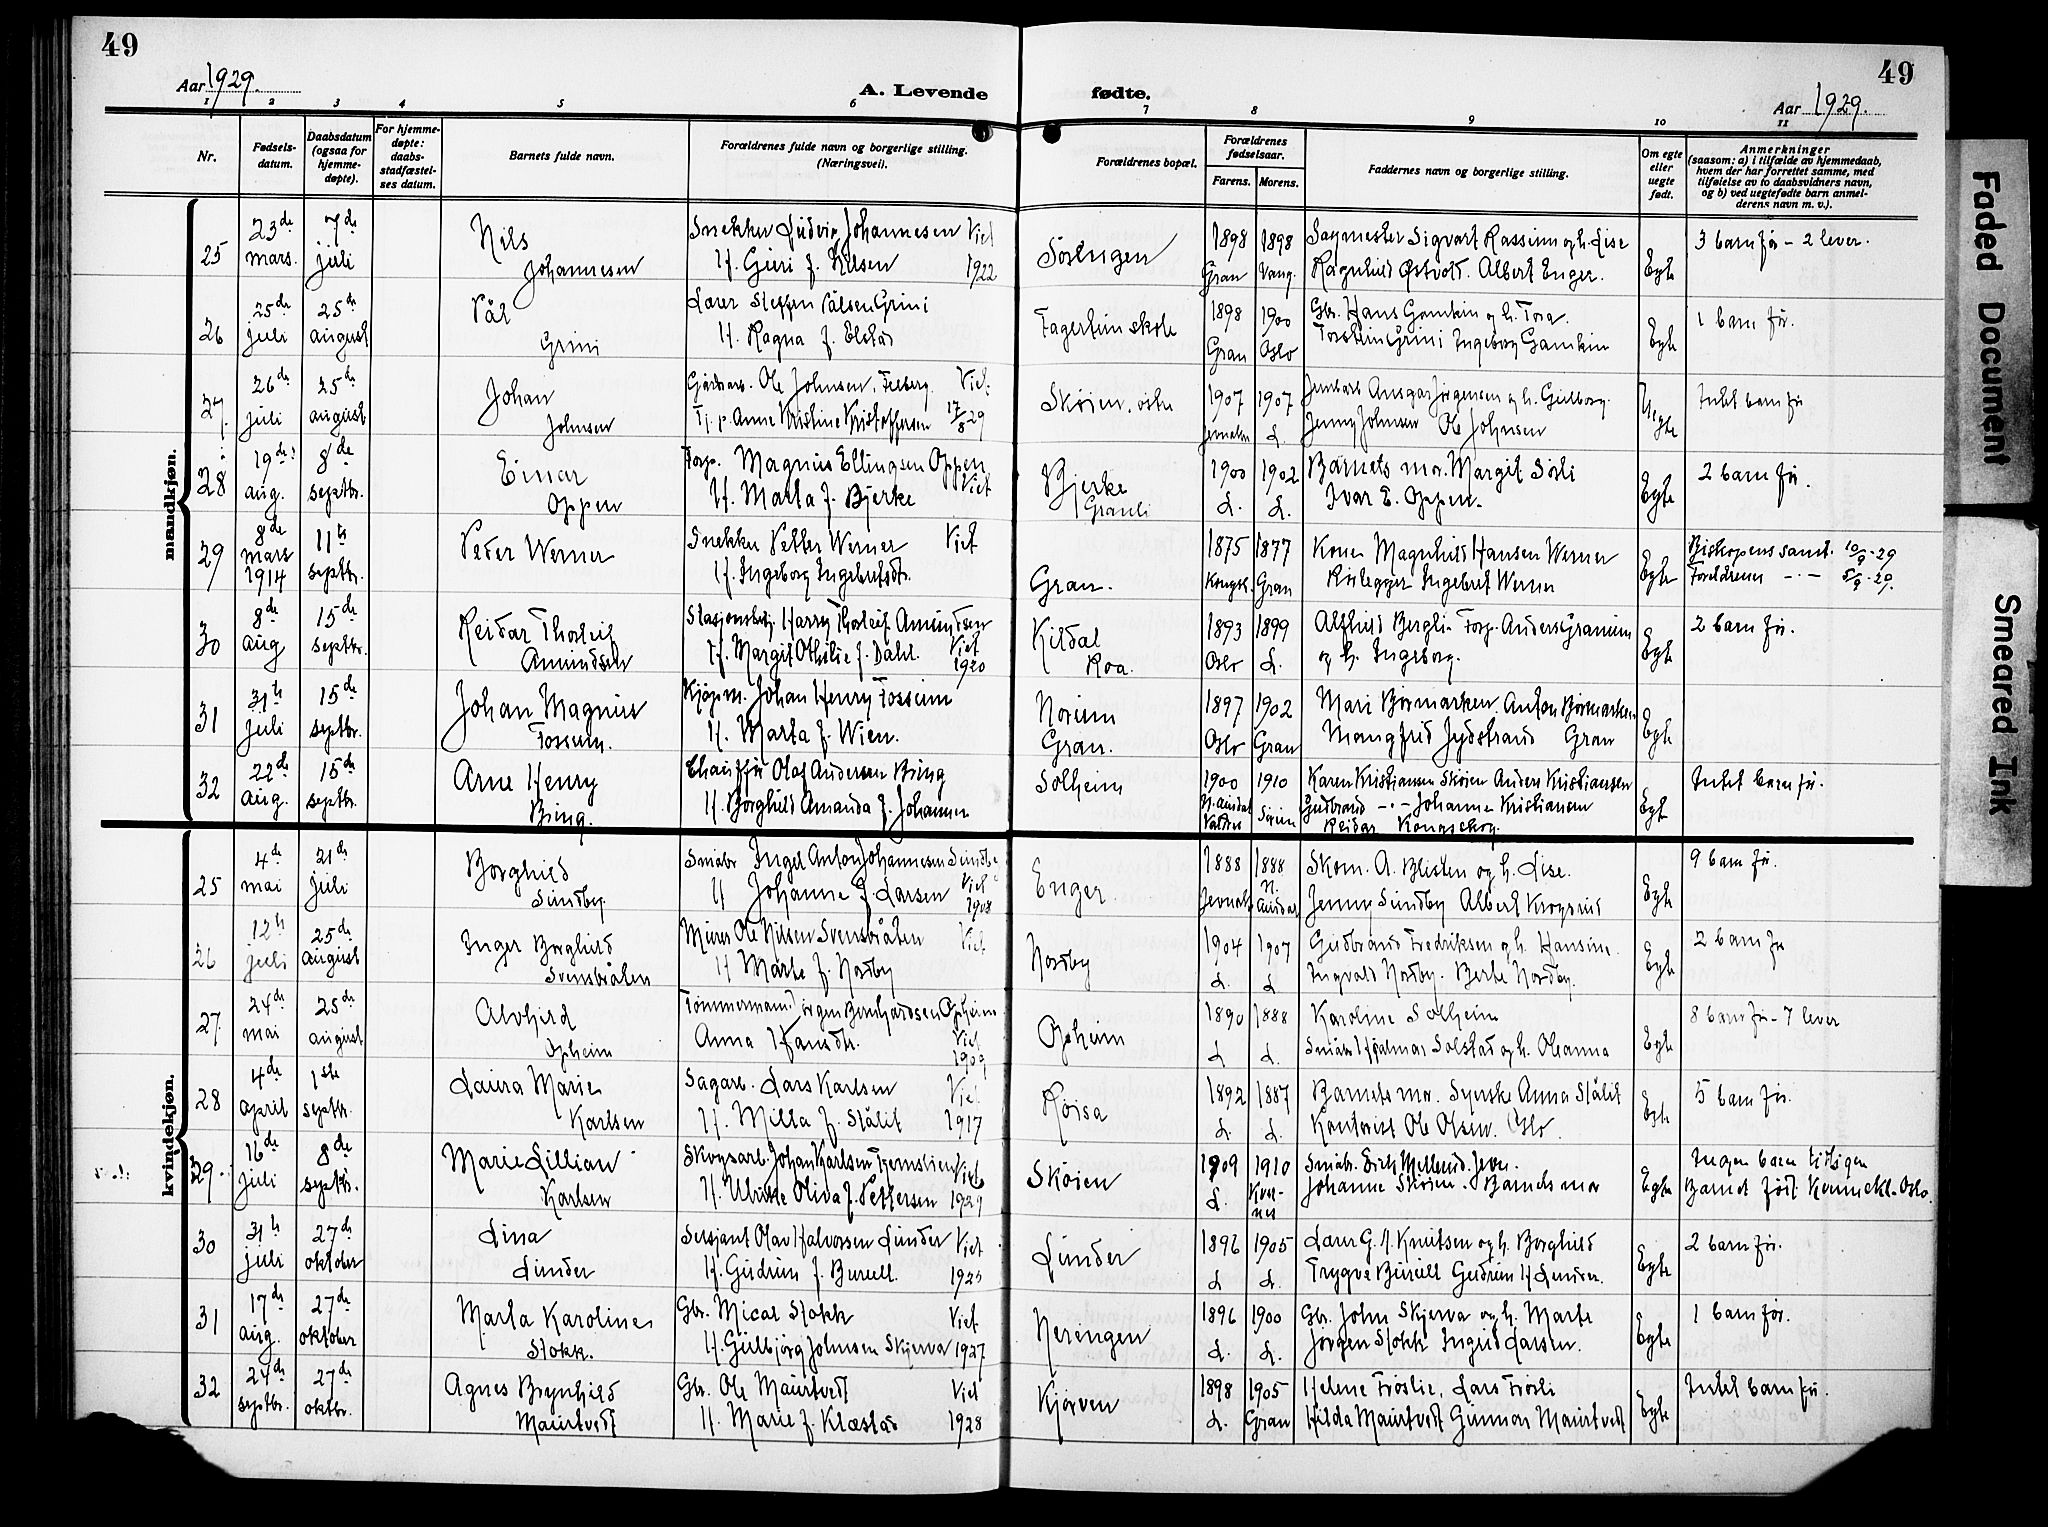 49
49
Aar 1929.
A. Levende
fødte.
Aar 1929.
1 2 3 4 5 6 7 8 9 10 11
Nr.
Fødsels-
datum.
Daabsdatum
(ogsaa for
hjemme-
døpte).
For hjemme-
døpte:
daabs-
stadfæstel-
ses datum.
Barnets fulde navn.
Forældrenes fulde navn og borgerlige stilling.
(Næringsvei).
Forældrenes bopæl.
Forældrenes
fødselsaar.
Farens. Morens.
Faddernes navn og borgerlige stilling.
Om egte
eller
uegte
født.
Anmerkninger
(saasom: a) i tilfælde av hjemmedaab,
hvem der har forrettet samme, med
tilføielse av to daabsvidners navn,
og b) ved uegtefødte barn anmel-
derens navn m. v.).
mandkjøn.
25 23de 7de Nils Snekker Ludvig Johannesen Viet 1898 1898 Sagmester Sigvart Rassum og h. Lise 3 barn før - 2 lever.
mars. juli Johannesen H. Guri f. Nilsen 1922 Sørlugen Gran Vang. Ragnhild Østvold. Albert Enger. Egte
26 25de 25de Pål Lærer Steffen Pålsen Grini Fagerheim skole 1898 1900 Gbr. Hans Gamkin og h. Tora. 1 barn før.
juli august Grini H. Ragna f. Elstad Gran Oslo Torstein Grini Ingeborg Gamkin Egte
27. 26de 25de Johan Gårdsarb. Ole Johnsen, Viet Skøien, østre 1907 1907 Ansgar Jørgensen og h. Gulborg. Intet barn før
juli august Johnsen P. p. Anne Kristine Kristoffersen 17/8 29 L. Jenny Johnsen Ole Johnsen Uegte
28 19de 8de Einar Forp. Magnus Ellingsen Oppen Bjerke 1900 1902 Barnets mor. Margit Sørli 2 barn før.
aug. septbr. Oppen H. Marta f. Bjerke Viet Granli L. L. Ivar E. Oppen. Egte
29 8de mars 11te Peder Werner Snekker Petter Werner Viet 1875 1877 Kone Magnhild Hansen Werner Biskopens samt. 10/9-29
1914 septbr. H. Ingeborg Ingebretsdtr. Gran. Gran Rørlegger Ingebret Werner Egte Foreldrenes -"- 5/9-29.
30 8de 15de Reidar Thorleif Stasjonsbetj. Harry Thorleif Amundsen Kildal 1893 1899 Alfhild Bergli. Forp. Anders Granum 2 barn før.
aug septbr. Amundsen H. Margit Othilie f. Dahl. Viet 1920 Roa. Oslo L. og h. Ingeborg. Egte
31 31te 15de Johan Magnus Kjøpm. Johan Henry Fossum Norum 1897 1902 Mari Bjørmarken. Anton Bjørmarken
juli septbr. Fossum. H. Marta f. Wien. Gran. Oslo Gran Mangfrid Jydstrand Gran Egte
32 22de 15de Arne Henry Chauffør Olaf Andersen Bing Solheim 1900 1910 Karen Kristiansen Skøien Anders Kristiansen Intet barn før.
aug. septbr. Bing. H. Borghild Amanda f. Johansen N. Aurdal Valdres Gudbrand -"- Johanne Kristiansen Egte
Reidar Kongsskog.
kvindekjøn.
25 4de 21de Borghild Småbr Ingel Anton Johannesen Sundby Enger 1888 1888 Skom. A. Blisten og h. Lise. 9 barn før.
mai juli Sundby. H Johanne f. Larsen Viet 1908 Jevnak. N. Aurdal Jenny Sundby Albert Krogsrud Egte
26 12te 25de Inger Borghild Murer Ole Nilsen Svensbråten Viet Nordby 1904 1907 Gudbrand Fredriksen og h. Hansine. 2 barn før
juli august Svensbråten H Marte f. Nordby L. L Ingvald Nordby. Berte Nordby. Egte
27 24de 25de Alvhild Tømmermann Jørgen Bernhardsen Opheim Opheim 1890 1888 Karoline Solheim 8 barn før - 7 lever
mai august Opheim Anna Hansdtr. Viet 1909 L L. Småbr Hjalmar Solstad og h. Oleanna Egte
28 4de 1ste Laura Marie Sagarb. Lars Karlsen Viet Røisa 1892 1887 Barnets mor. Syerske Anna Stålit 5 barn før.
april septbr. Karlsen H. Milla f. Stålit 1917 L. L. Kontorist Ole Olsen. Oslo Egte
29 16de 8de Marie Lillian Skogsarb. Johan Karlsen Viet Skøien 1909 1910 Småbr. Jevn. Ingen barn tidligere
juli septbr. Karlsen H. Ulrikke Oliva f. Pettersen 1929 L. Johanne Skøien. Barnets mor Egte Barnet født Kvinnekl. Oslo.
30 31te 27de Lina Sersjant Olav Halvorsen Lunder Viet Lunder 1896 1905 Lærer G. A. Knutsen og h. Borghild 2 barn før.
juli oktober Lunder H. Gudrun f. Burull. 1923 L L. Trygve Burull Gudrun H. Lunder. Egte
31 17de 27de Marta Karoline Gbr. Mical Stokk Viet Neringen 1896 1900 Gbr. John Skjerva og h. Marte 1 barn før.
aug. oktober Stokk. H. Gulbjørg Johnsen Skjerva 1927 L. L. Jørgen Stokk Ingrid Larsen. Egte
32 24de 27de Agnes Brynhild Gbr. Ole Maurtvedt Viet Kjørven 1898 1905 Helene Frøslie, Lars Frøsli Intet barn før.
septbr. oktbr. Maurtvedt H. Marie f. Klæstad 1928 L. Gran Hilda Maurtvedt Gunnar Maurtvedt Egte
Faded Document
Smeared Ink